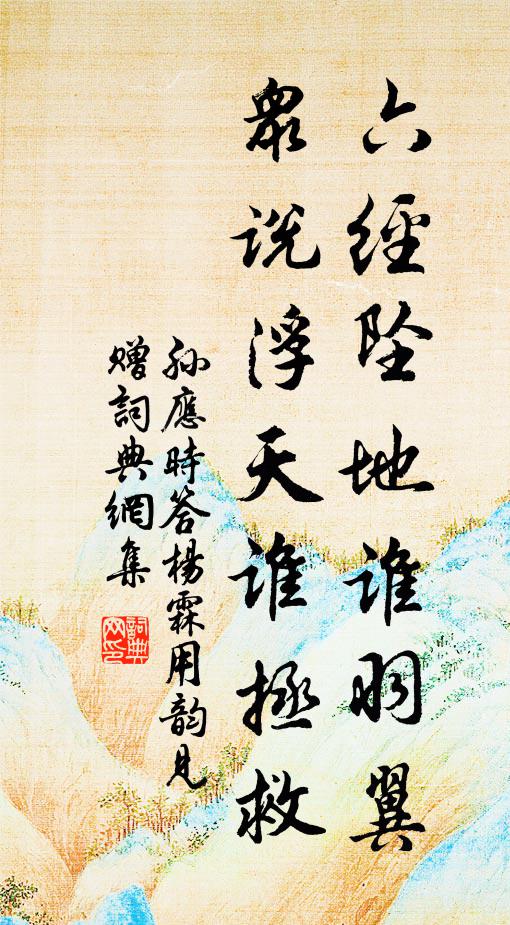 六經墜地誰羽翼
眾說浮天誰拯救
孫應時答楊霖用韵見
贈詞典網集
詞典
网印